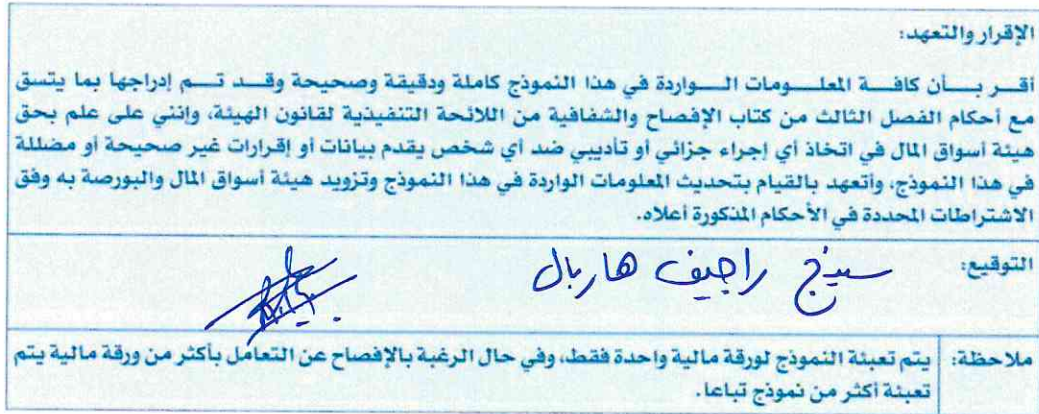 الإقرار والتعهد:
أقر بأن كافة المعلومات الواردة في هذا النموذج كاملة ودقيقة وصحيحة وقد تم إدراجها بما يتسق
مع أحكام الفصل الثالث من كتاب الإفصاح والشفافية من اللائحة التنفيذية لقانون الهيئة، وإنني على علم بحق
هيئة أسواق المال في اتخاذ أي إجراء جزائي أو تأديبي ضد أي شخص يقدم بيانات أو إقرارات غير صحيحة أو مضللة
في هذا النموذج، وأتعهد بالقيام بتحديث المعلومات الواردة في هذا النموذج وتزويد هيئة أسواق المال والبورصة به وفق
الاشتراطات المحددة في الأحكام المذكورة أعلاه.
التوقيع: سينج راجيف هاربال
ملاحظة: يتم تعبئة النموذج لورقة مالية واحدة فقط، وفي حال الرغبة بالإفصاح عن التعامل بأكثر من ورقة مالية يتم
تعبئة أكثر من نموذج تباعا.